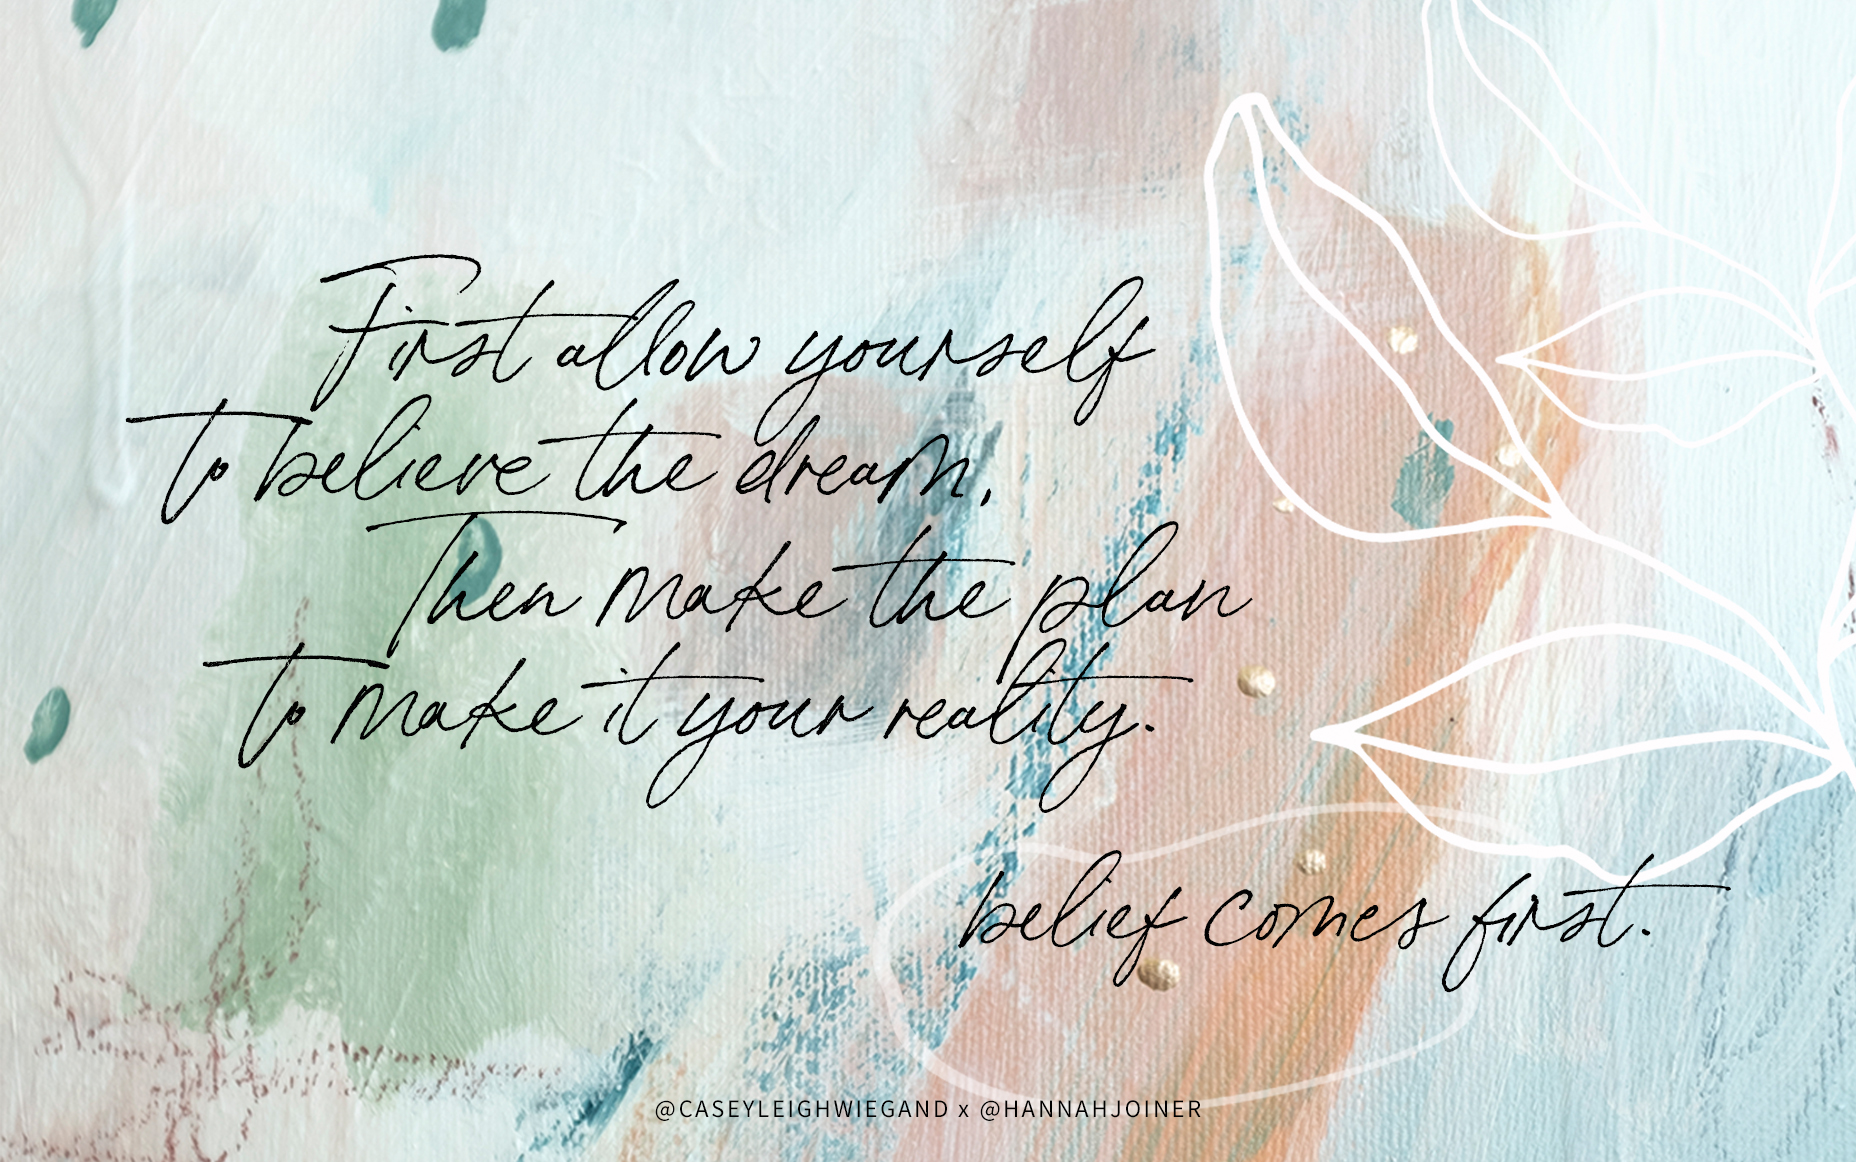 First allow yourself
to believe the dream,
Then make the plan
to make it your reality.
belief comes first.
@CASEYLEIGHWIEGAND x @HANNAHJOINER